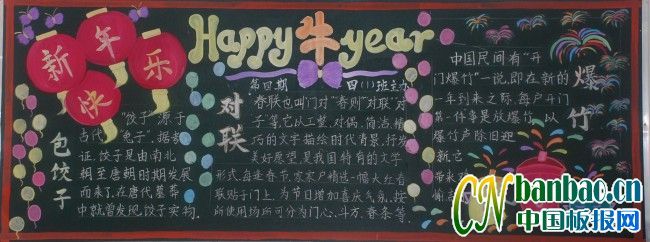 新年快乐
Happy牛year
第四期 四(1)班主办
包饺子
"饺子"源于
古代"
证,饺子是由南北
朝至唐朝时期发展
而来了,在唐代墓葬
中就曾发现饺子实物。
对联
春联也叫"门对""春贴""对联""对
子"等,它以工整、对偶、简洁、精
巧的文字描绘时代背景,抒发
美好愿望,是我国特有的文学
形式,每逢春节,家家户户精选一幅大红春
联贴于门上,为节日增加喜庆气氛,按
所使用场所可分为门心、斗方、春条等。
爆竹
中国民间有"开
门爆竹"一说,即在新的
一年到来之际,每户开门
第一件事是放爆竹,以
爆竹声除旧迎
新,它
CNbanbao.cn
中国板报网